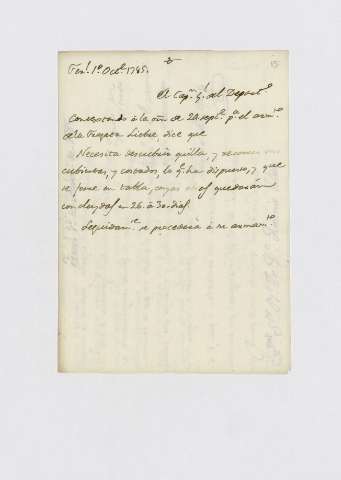 Fen.l 1.o Oct.e 1785.
Al Cap.n G.l del Depart.o
Contestando à la orn de 24 sept.e p.a el arm.to
de la Fragata Liebre dice que
Necesita descubrir quilla, y reconocer sus
cubiertas, y costados, lo q.e ha dispuesto, y que
se forre en tabla, cuyas obras quedarán
concluydas en 26. à 30. dias
Seguidam.te se procederá à su armam.to